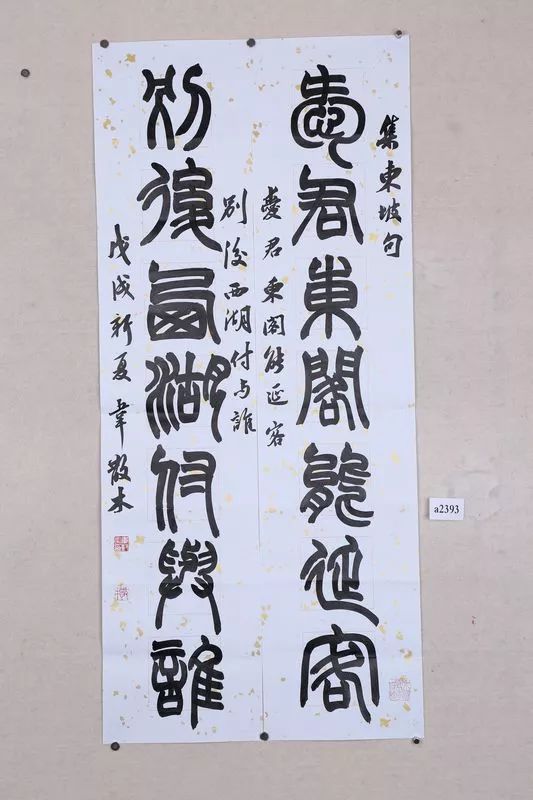 集東坡句
愛君東閣能延客
愛君東閣能延客
別後西湖付與誰
別後西湖付与誰
戊戌新夏韋散木
a2393